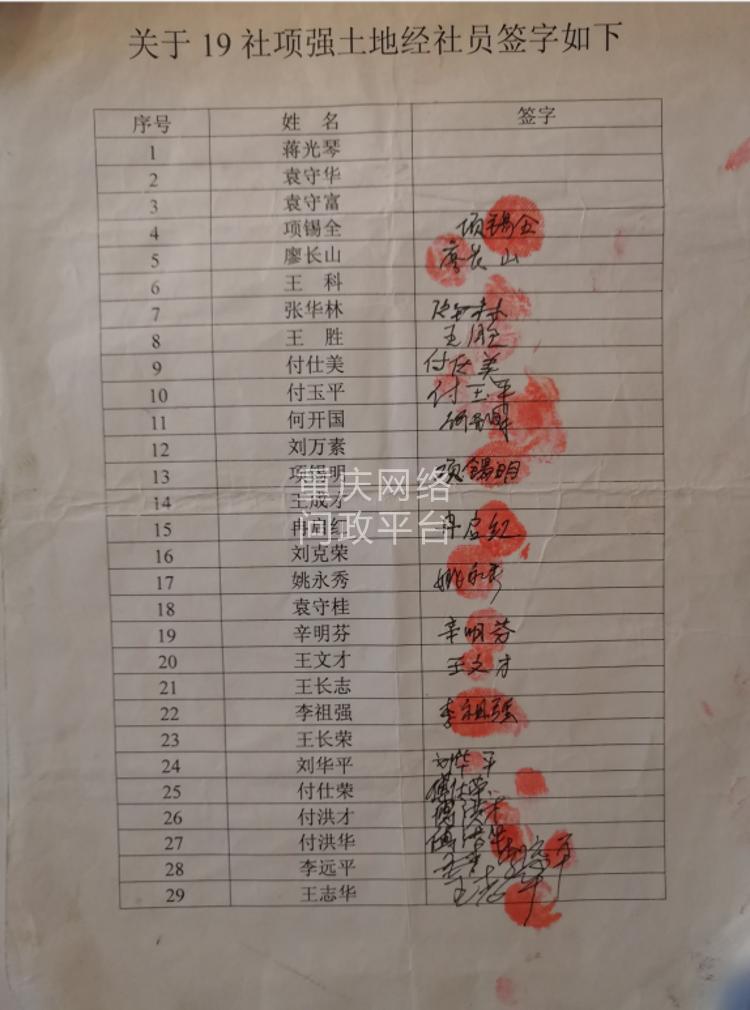 关于 19 社项强土地经社员签字如下
序号 姓 名 签字
1 蒋光琴
2 袁守华
3 袁守富
4 项锡全 项锡全
5 廖长山 廖长山
6 王 科
7 张华林
8 王 胜 王胜
9 付仕美 付仕美
10 付玉平 付玉平
11 何开国
12 刘万素
13 项锡明 项锡明
14 王成才
15 冉启红 冉启红
16 刘克荣
17 姚永秀 姚永秀
18 袁守桂
19 辛明芬 辛明芬
20 王文才 王文才
21 王长志
22 李祖强 李祖强
23 王长荣
24 刘华平 刘华平
25 付仕荣 傅仕荣
26 付洪才 傅洪才
27 付洪华 傅洪华
28 李远平
29 王志华
重庆网络
问政平台